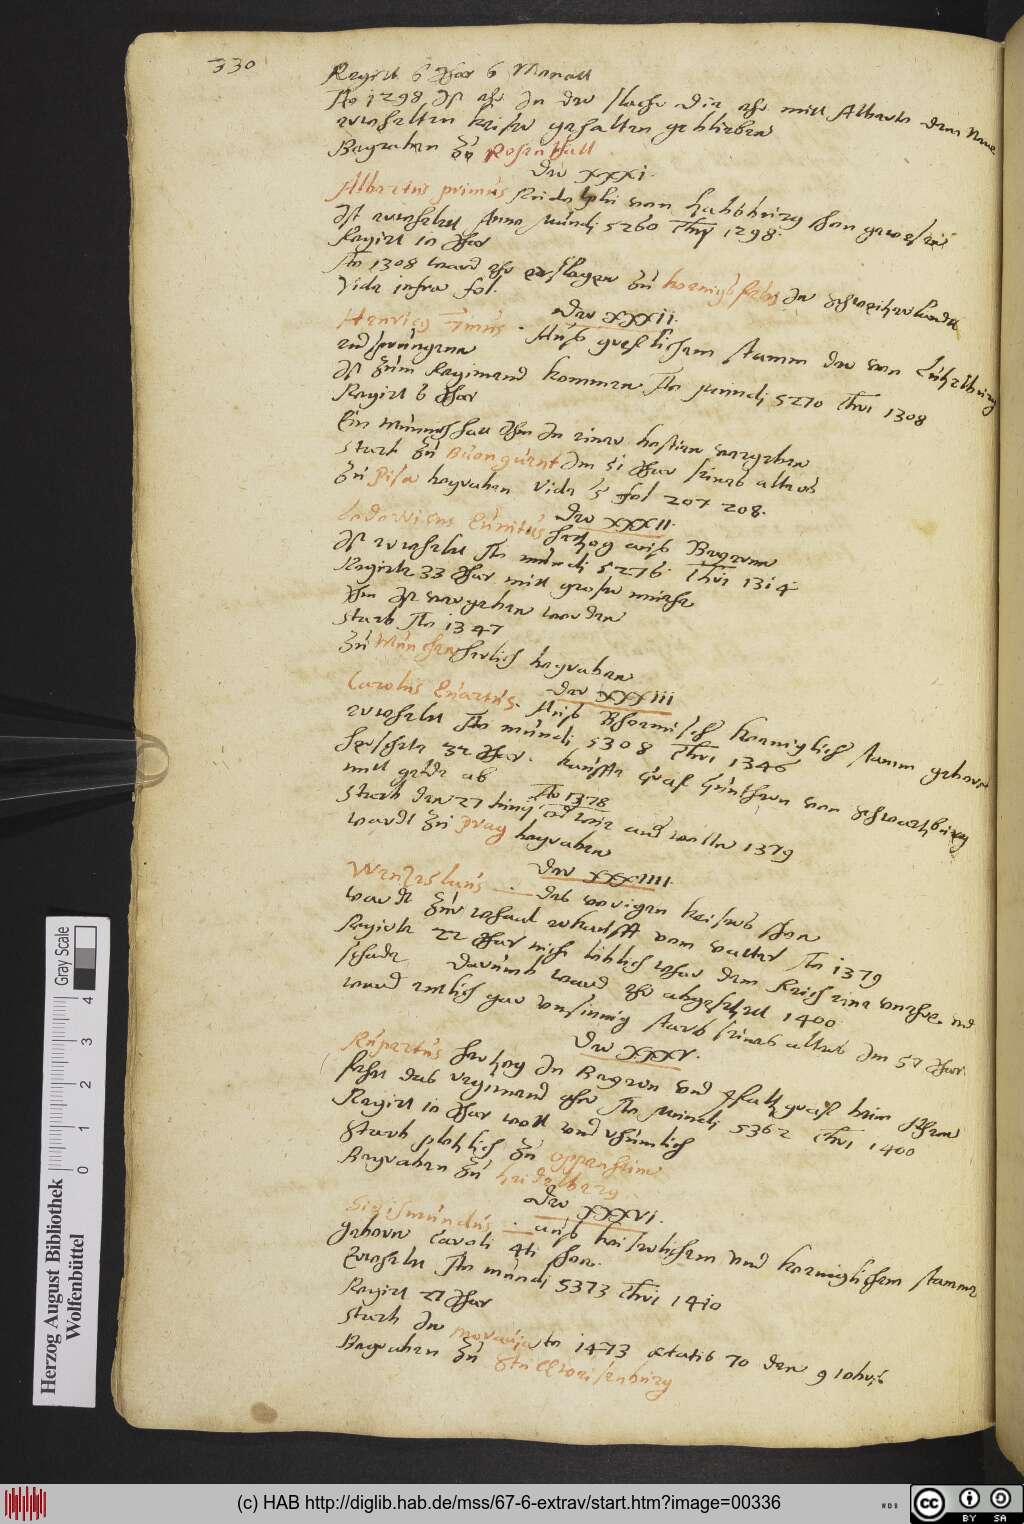 330
Regirt 6 Jhar 6 Monatt
Ao 1298 Jst ehr Jn der slacht die ehr mitt Alberto dem neue
erwehelten keiser gehalten gebliebenn
Begraben zu Rosenthall
Der XXXI.
Albertus primus Rudolphi von Habsburg Shon gewesen
Jst erwehelet Anno mundi 5260 Chri 1298.
Regirt 10 Jhar
Ao 1308 ward ehr erslagen zu koenigsfelds Jn schweitzerlandt
Vide infra fol.
Der XXXII.
Henricus 7mus. Auß greflichem stamm der von Lutzelburg
endsprungenn
Jst zum Regimend kommen Ao mundi 5270 Chri 1308
Regirt 6 Jhar
Ein Munch hatt Jhm Jn einer hostien vergeben
starb zu Buonguent Jm 51 Jhar seines alters
Zu Pisa begraben Vide fol 207 208.
Der XXXII.
Ludovicus Quintus Hertzog auß Bayernn
Jst erwehelet Ao mundi 5276. Chri 1314.
Regirte 33 Jhar mitt grosser muehe
Jhm Jst vergeben worden
starb Ao 1347
Zu Munchen herlich begraben
Der XXXIII
Carolus Quartus. Auß Bhoemisch koeniglich stamm geboren
erwehelet Ao mundi 5308 Chri 1346
herschete 32 Jhar. kauffte Graf Gunthern von schwartzburg
mitt gelde ab
Ao 1378
starb den 27 wie andere wollen 1379
wardt zu Prag begraben
Der XXXIIII.
Wenzeslaus. des vorigen keisers shon
wardt zum erkaufft vom vatter Ao 1379
Regirte 22 Jhar nicht löblich whar dem Reich eine unehre und
schade. Darumb ward ehr abgesetzet 1400
ward entlich gar unsinnig starb seines alters Jm 57 Jhar.
Der XXXV.
Rupertus Hertzog Jn Bayern und Pfaltzgraff beim Rhein
Regirt 10 Jhar woll und rhumlich
Starb plotzlich zu oppenheim
Begraben zu heidelberg
Der XXXVI.
Sigismundus. auß keiserlichem und koeniglichem stamme
geboren Caroli 4ti shon.
Erwehelet Ao mundi 5373 Chri 1410
Regirt 27 Jhar
starb Jn moravia Ao 1473 aetatis 70 den 9
Begraben zu
Herzog August Bibliothek
Wolfenbüttel
0 1 2 3 4
Gray Scale
(c) HAB http://diglib.hab.de/mss/67-6-extrav/start.htm?image=00336
WDB
CC BY SA